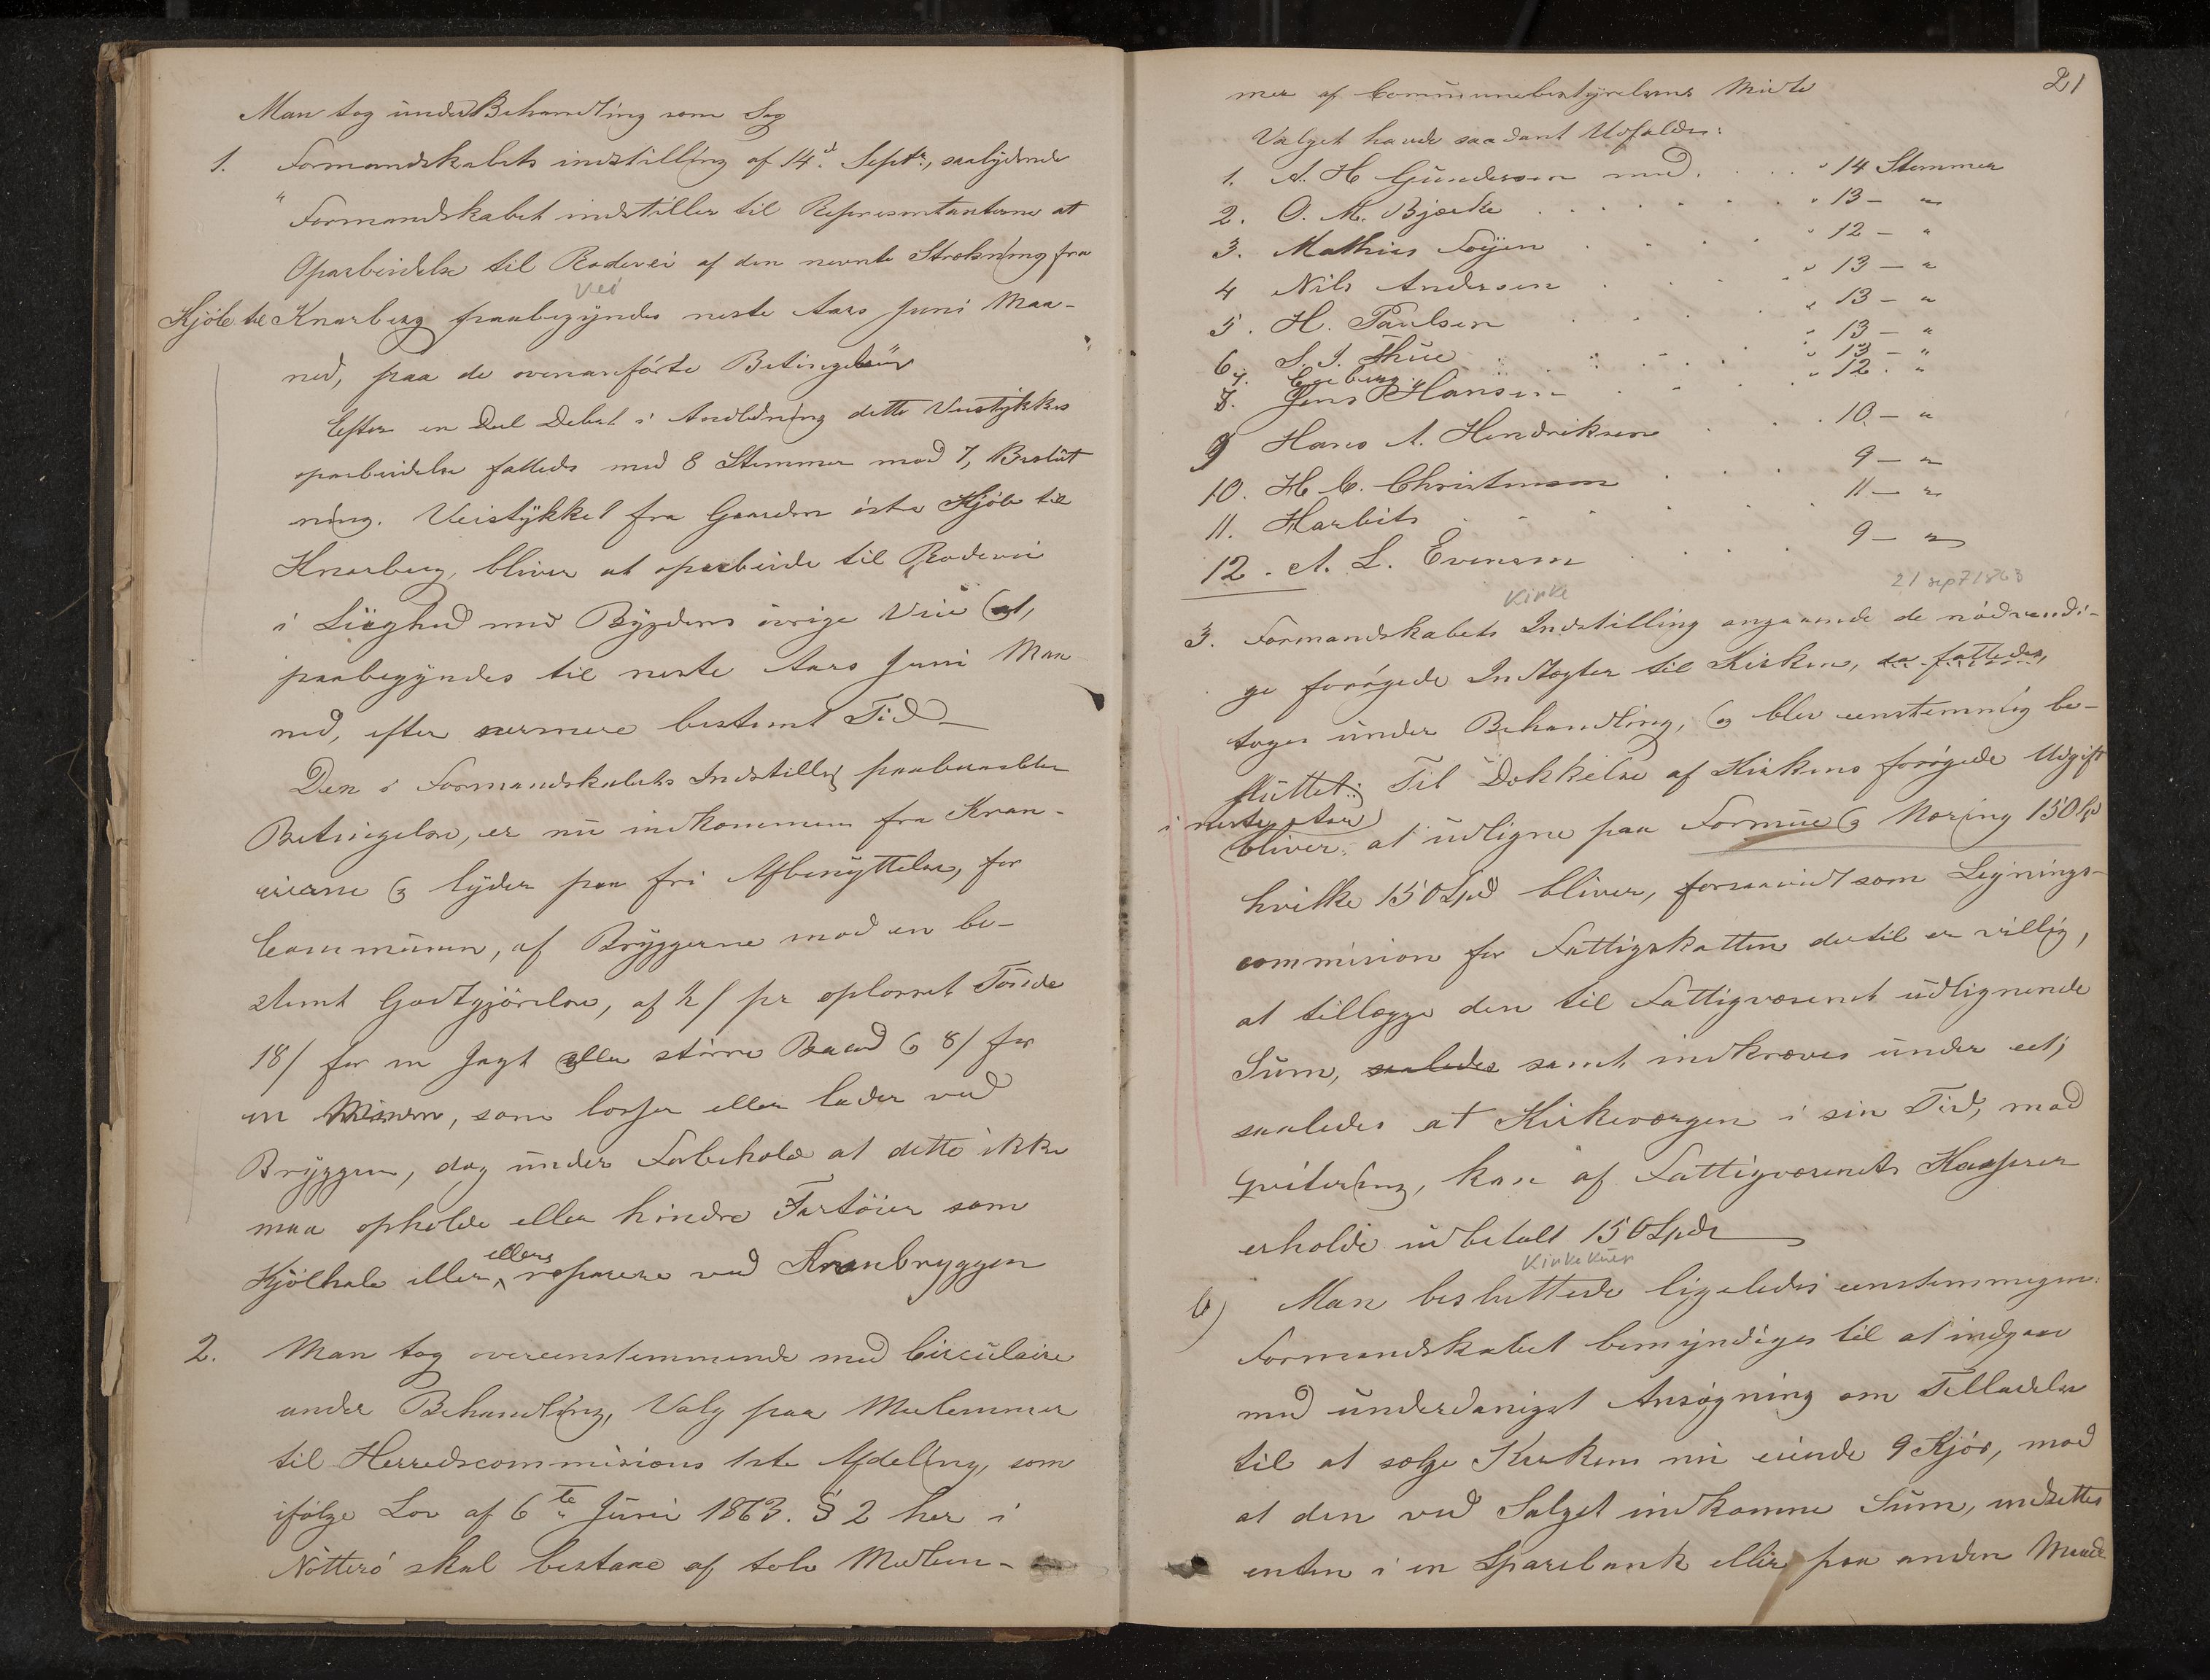 Man tog under Behandling som Sag
1. Formandskabets indstilling af 14d. Septr., saalydende
"Formandskabet indstiller til Representanterne at
Oparbeidelse til Rodevei af den nevnte Strekning fra
Vei
Kjöle til Knarberg paabegyndes neste Aars Juni Maa-
ned, paa de ovenanförte Betingelser
Efter en Deel Debat i Anledning dette Veistykkes
oparbeidelse fattedes med 8 Stemmer mod 7, Beslut
ning. Veistykket fra Gaarden östre Kjöle til
Knarberg, bliver at oparbeide til Rodevei
i Liighed med Bygdens övrige Veie at,
paabegyndes til neste Aars Juni Maa
ned, efter nermere bestemt Tid
Den i Formandskabets Indstilling paaberaabte
Betingelse, er nu indkommen fra Kran-
eierne og lyder paa fri Afbenyttelse, for
Communen, af Bryggerne mod en be-
stemt Godtgjörelse, af ½ / pr oplosset Tönde
18/ for en Jagt eller större Baad og 8/ for
en Mindre, som losser eller lader ved
Bryggen, dog under Forbehold at dette ikke
maa opholde eller hindre Fartöier som
ellers
Kjölhale eller reparere ved Kranbryggen
2. Man tog overeenstemmende med Circulaire
under Behandling, Valg paa Medlemmer
til Herredscommisions 1ste Afdeling, som
ifölge Lov af 6te Juni 1863. § 2 her i
Nötterö skal bestaae af tolv Medlem-
21
mer af Communebestyrelsens Midte
Valget havde saadant Udfald:
1. A. H Gundersen med . . . " 14 Stemmer
2. O. M. Bjerke . . . " 13 - "
3. Mathias Föyen . . . " 12 - "
4 Nils Andersen . . . " 13 - "
5. H. Paulsen . . . " 13 - "
6. S. J. Thue . . . " 13 - "
7. Egeberg . . . " 13 - "
8. Jens Hansen . . . " 12. "
9 Hans A. Hendriksen . . . 10. - "
10. H. C. Christensen . . . 9 - "
11. Harbits . . . 11 - "
12. A. L. Evensen . . . 9 - "
Kirke 21 sept 1863
3. Formandskabets Indstilling angaaende de nödvendi-
ge forögede Indtægter til Kirken, sa fattedes,
toges under Behandling, og blev eenstemmig be-
sluttet: Til Dekkelse af Kirkens forögede Udgift
i neste Aar
bliver at udligne paa Formue og Næring 150 Spd
hvilke 150 Spd bliver, forsaavidt som Lignings-
commision for Fattigskatten dertil er villig,
at tillægge den til Fattigvæsenet udlignende
Sum, saaledes samt indkræves under eet;
saaledes at Kirkeværgen i sin Tid, mod
Qvitering, kan af Fattigvæsenets Kasserer
erholde udbetalt 150 Spdr
Kirkekuer
b) Man besluttede ligeledes eenstemmigen:
Formandskabet bemyndiges til at indgaae
med underdanigst Ansögning om Tilladelse
til at sælge Kirkens nu eiende 9 Kjör, mod
at den ved Salget indkomne Sum, indsettes
enten i en Sparebank eller paa anden Maade